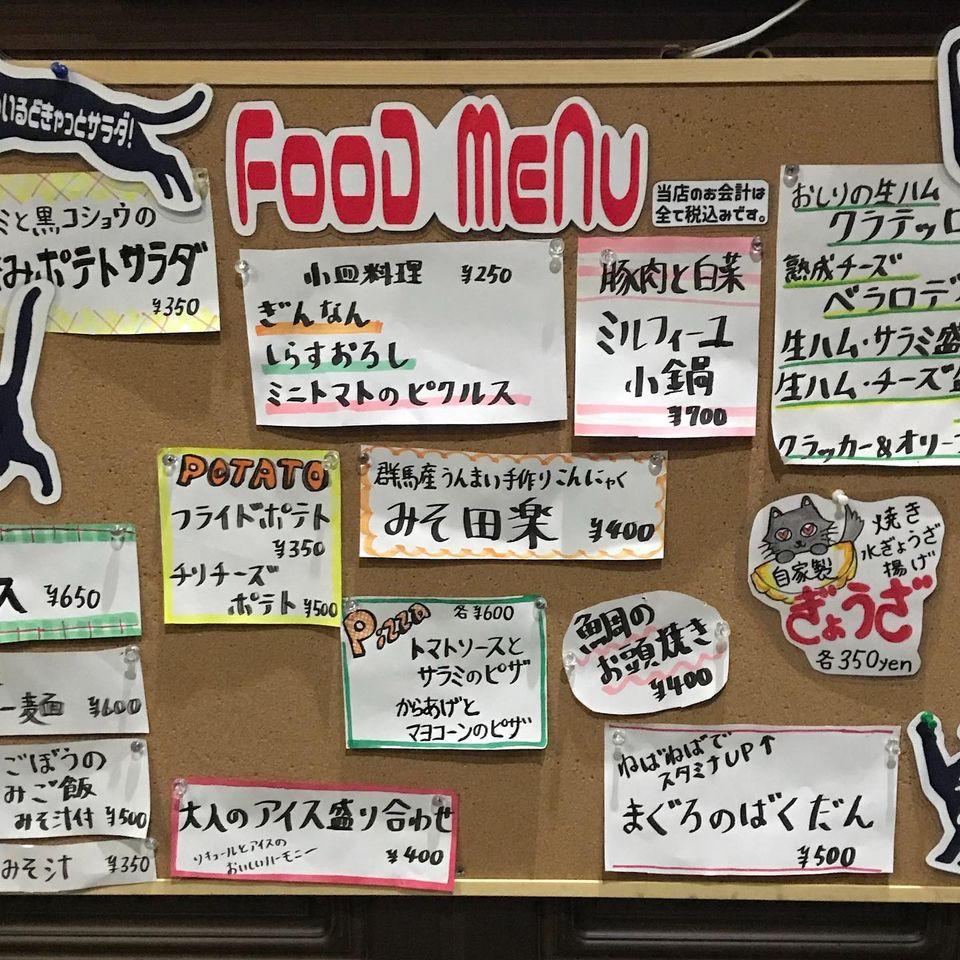 いるどきゃっとサラダ!
FOOD MENU
当店のお会計は
全て税込みです。
ミと黒コショウの
みポテトサラダ
¥350
小皿料理 ¥250
ぎんなん
しらすおろし
ミニトマトのピクルス
豚肉と白菜
ミルフィーユ
小鍋
¥700
おしりの生ハム
クラテッロ
熟成チーズ
ベラロデ
生ハム・サラミ盛
生ハム・チーズ
クラッカー&オリーブ
POTATO
フライドポテト
¥350
チリチーズ
ポテト ¥500
群馬産うんまい手作りこんにゃく
みそ田楽 ¥400
焼き
水ぎょうざ
揚げ
自家製
ぎょうざ
各350yen
ス ¥650
Pizza 各¥600
トマトソースと
サラミのピザ
からあげと
マヨコーンのピザ
鯛の
お頭焼き
¥400
ー麺 ¥600
ごぼうの
みご飯
みそ汁付 ¥500
みそ汁 ¥350
大人のアイス盛り合わせ
リキュールとアイスの
おいしいハーモニー
¥400
ねばねばで
スタミナUP↑
まぐろのばくだん
¥500